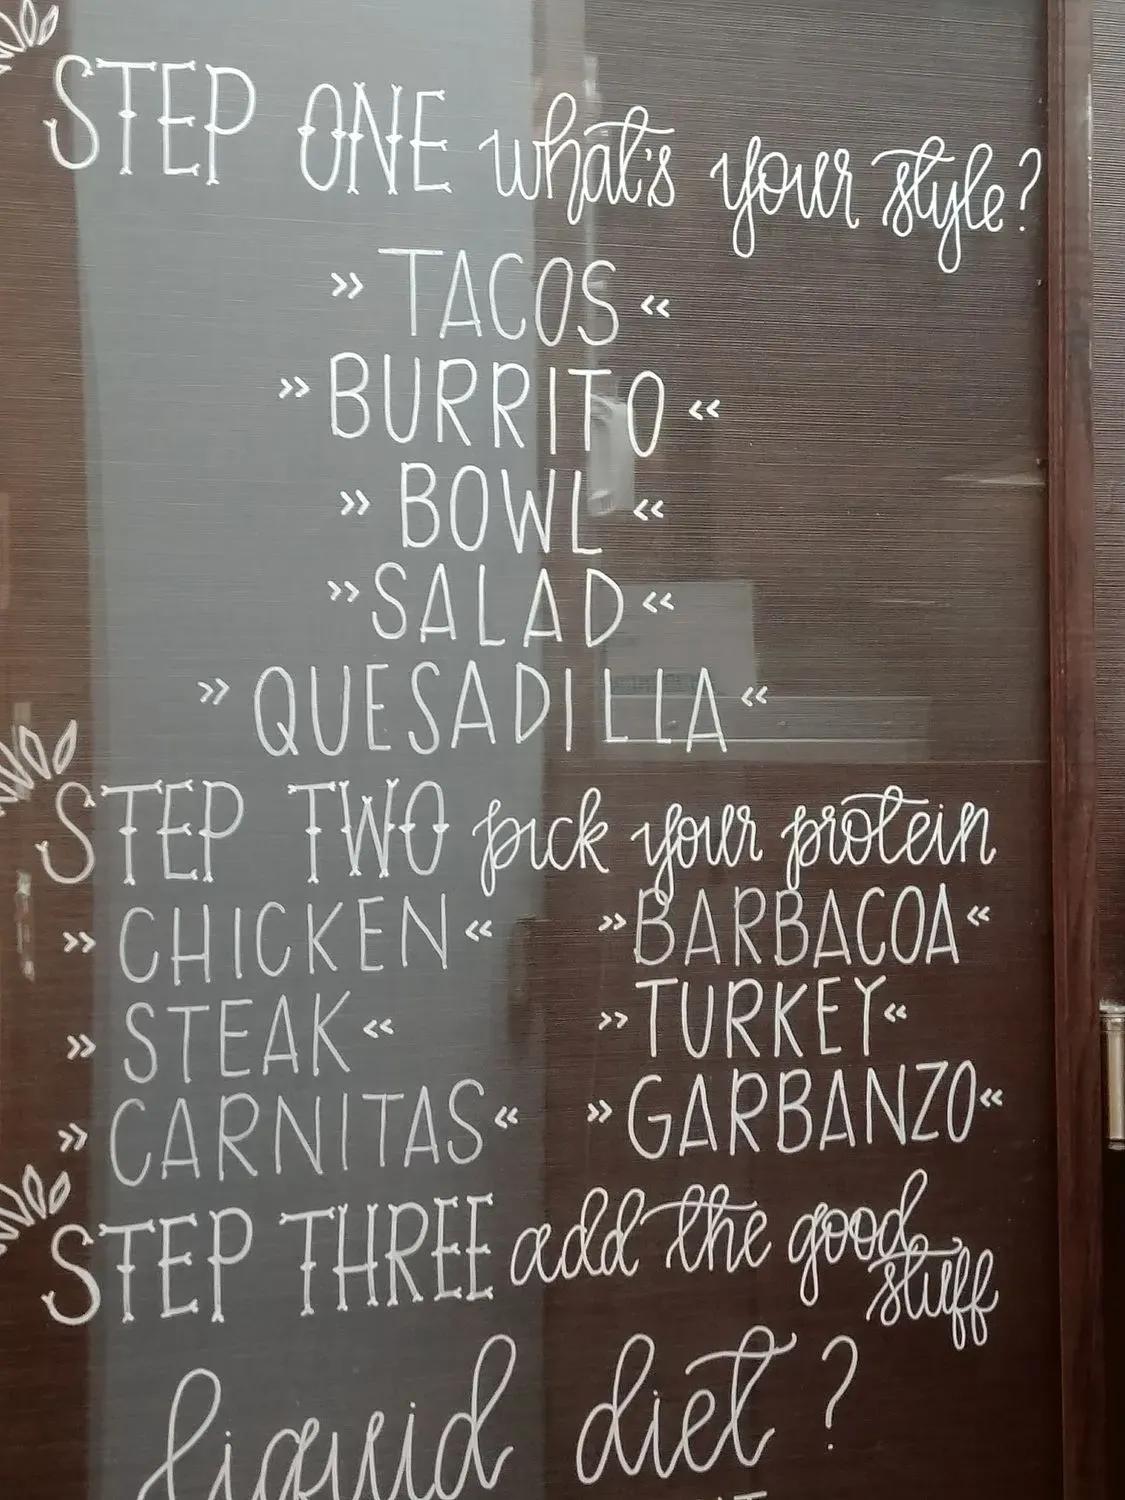 STEP ONE what's your style?
» TACOS «
» BURRITO «
» BOWL «
» SALAD «
» QUESADILLA «
STEP TWO pick your protein
» CHICKEN « » BARBACOA «
» STEAK « » TURKEY «
» CARNITAS « » GARBANZO «
STEP THREE add the good
stuff
liquid diet?